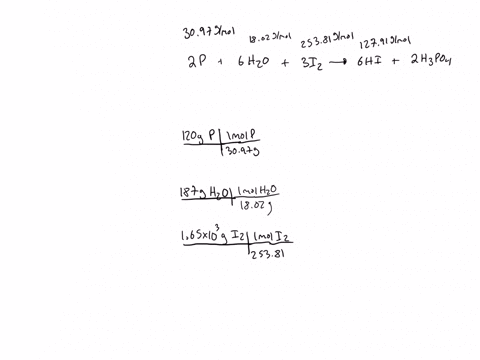 30.97g/mol 18.02g/mol 253.81g/mol 127.91g/mol
2P + 6H2O + 3I2 → 6HI + 2H3PO4
120g P | 1mol P
30.97g
187g H2O | 1mol H2O
18.02g
1.65x10³ g I2 | 1mol I2
253.81